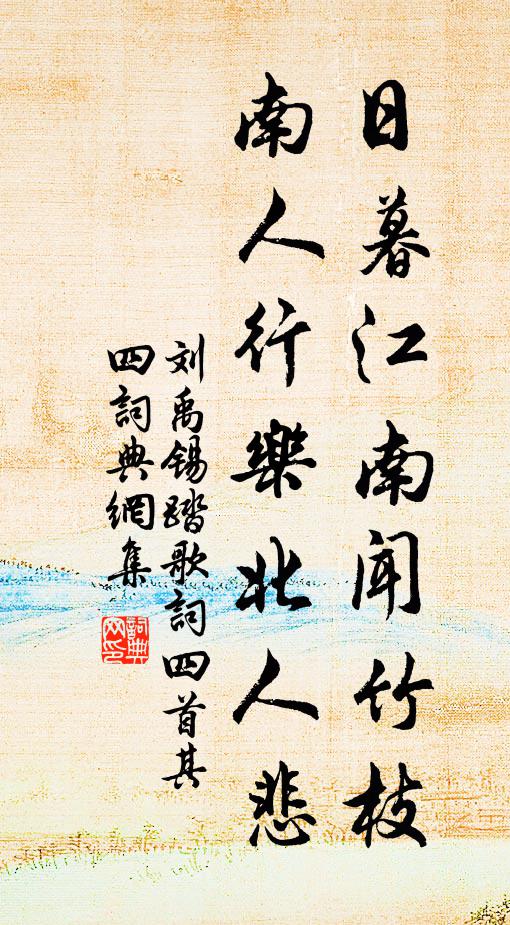 日暮江南闻竹枝
南人行樂北人悲
刘禹锡踏歌詞四首其
四詞典網集
詞典
网印